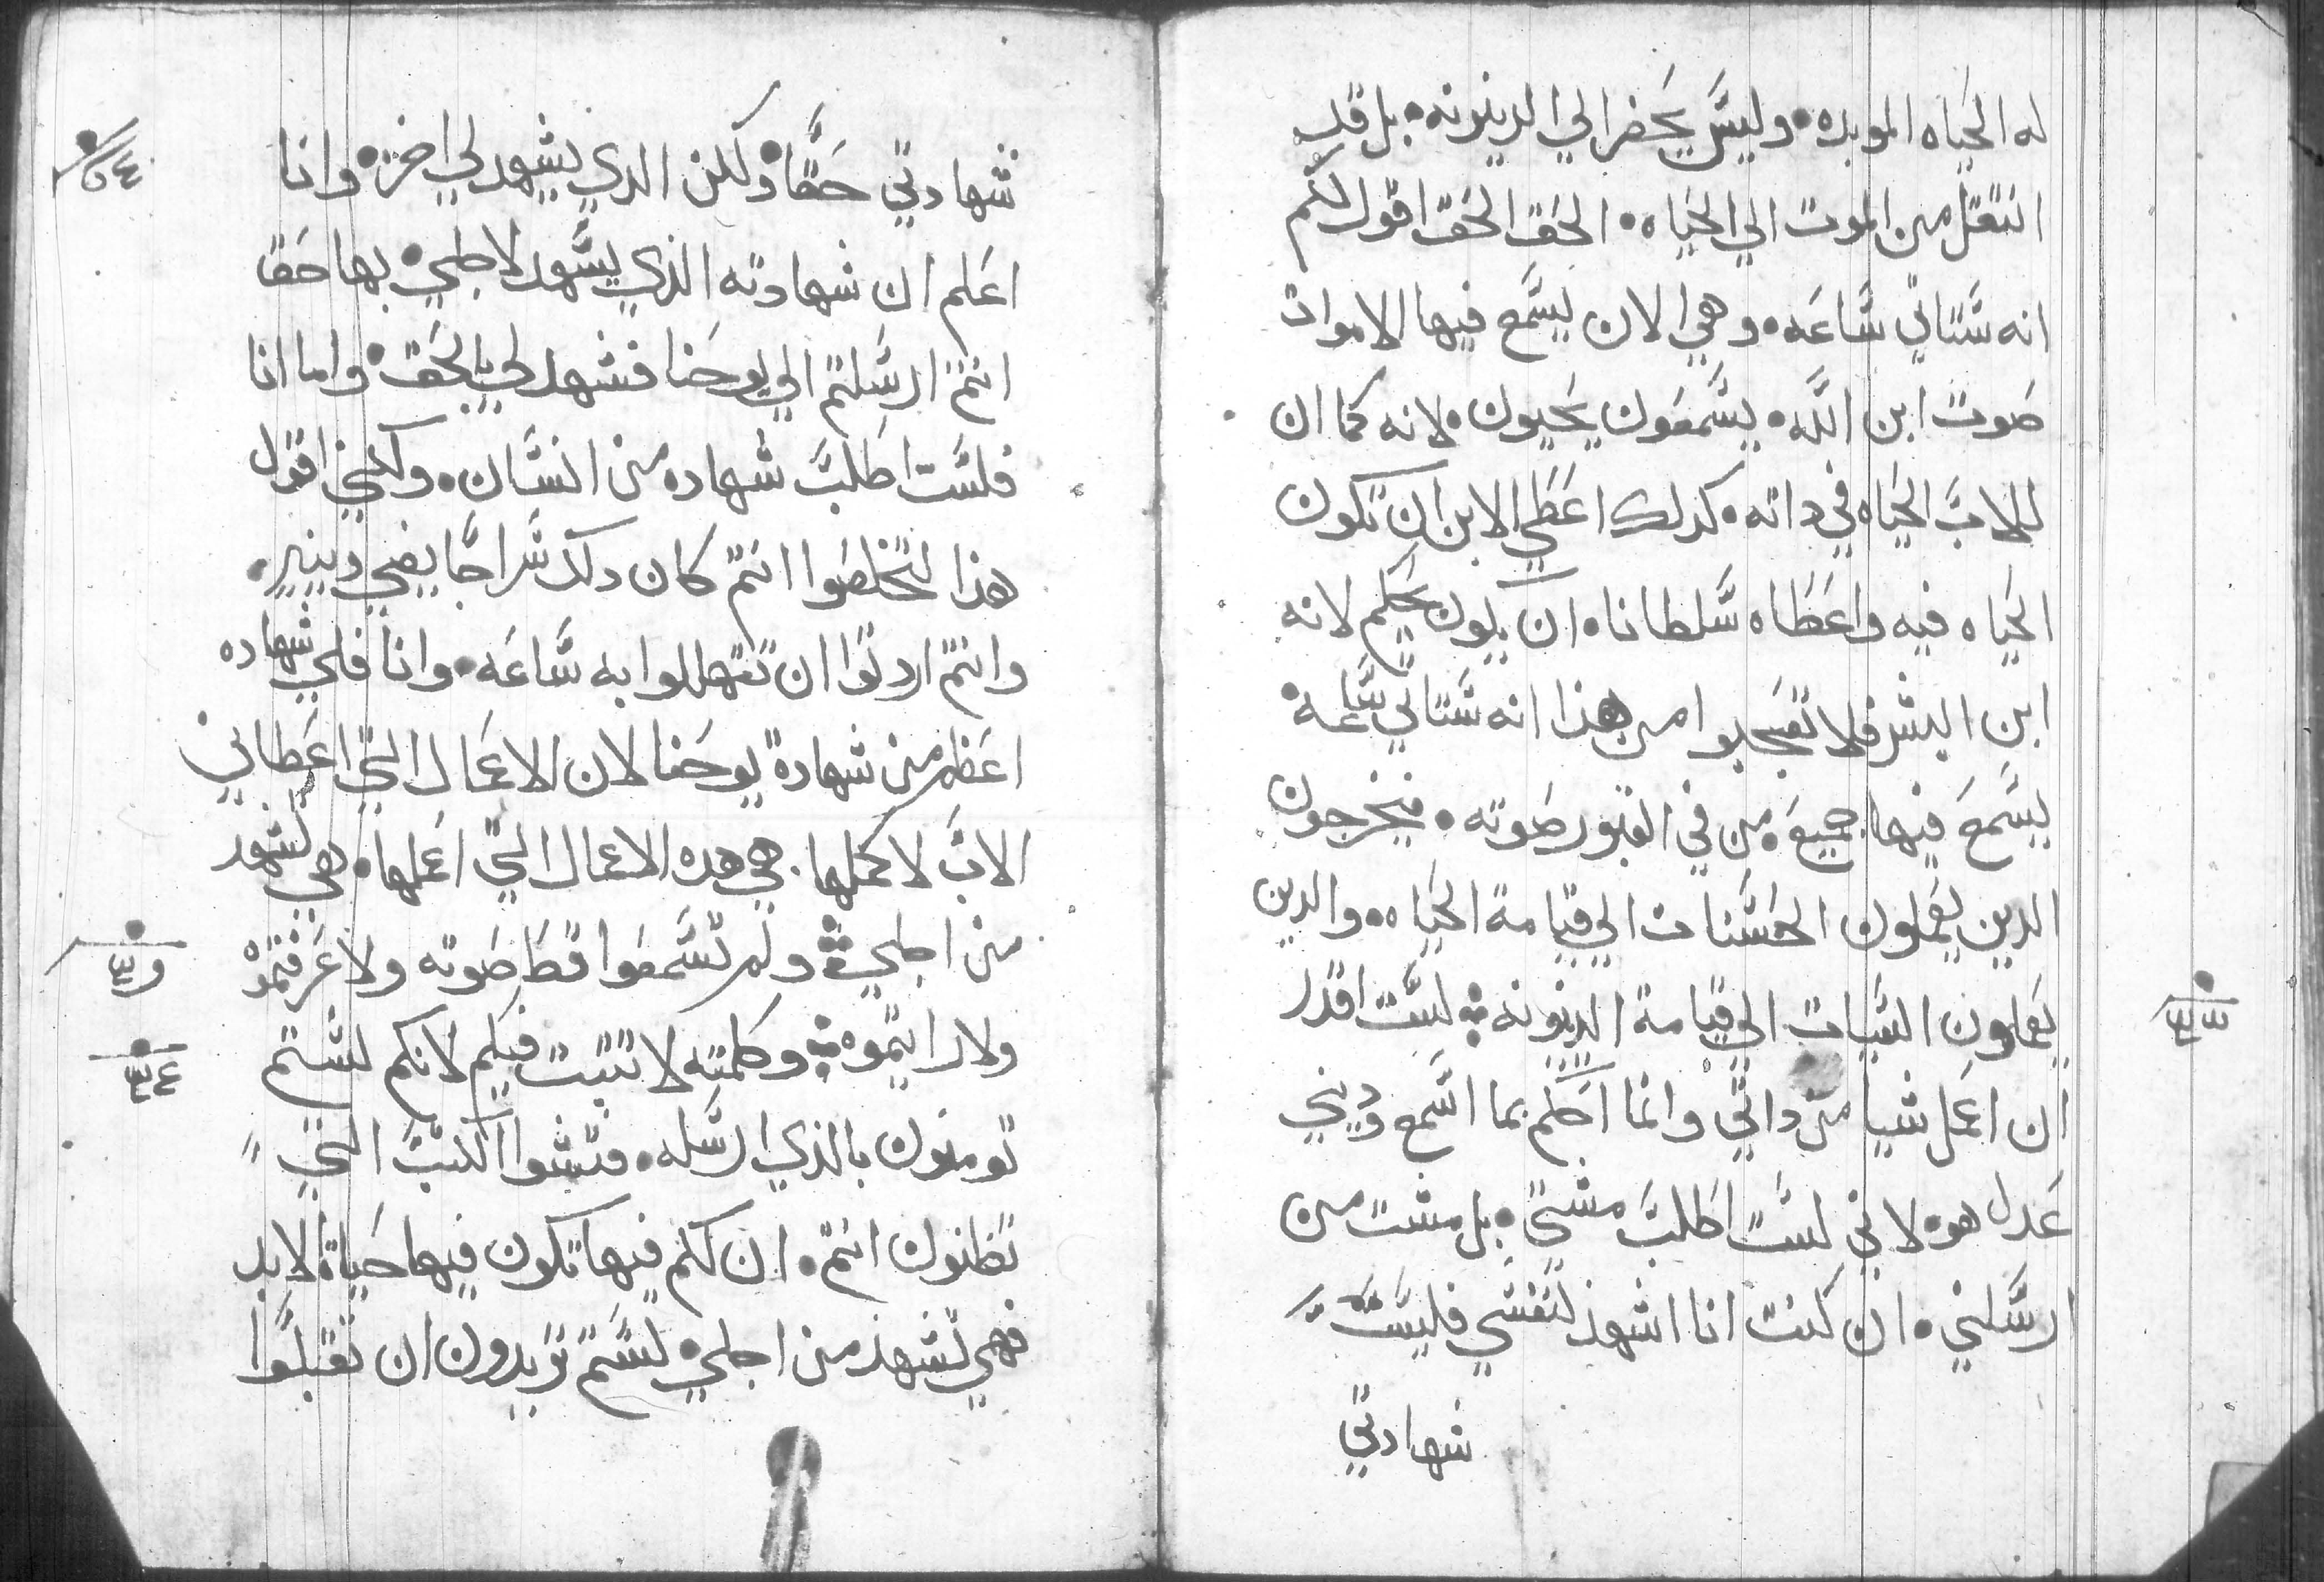 له الحياه الموبده • وليس يحضر الي الدينونه • بل قد
انتقل من الموت الي الحياه • الحق الحق اقول لكم
انه ستاتي ساعه • وهي الان يسمع فيها الاموات
صوت ابن الله • يسمعون يحيون • لانه كما ان
للاب الحياه في داته • كدلك اعطي الابن ان تكون
الحياه فيه واعطاه سلطانا • ان يكون يحكم لانه
ابن البشر فلا تعجبوا من هذا انه ستاتي ساعة
يسمع فيها جميع من في القبور صوته • فيخرجون
الدين يعملون الحسنات الي قيامة الحياه • والدين
يعملون السيات الي قيامة الدينونه • لست اقدر
ان اعمل شيا من داتي وانما احكم بما اسمع وديني
عدل هو • لاني لست اطلب مشتي • بل مشت من
ارسلني • ان كنت انا اشهد لنفسي فليست
شهادتي
شهادتي حقا • ولكن الدي يشهد لي اخر • وانا
اعلم ان شهادته الذي يشهد لاجلي • بها حقا
انتم ارسلتم الي يوحنا فشهد لي بالحق • واما انا
فلست اطلب شهاده من انسان • ولكني اقول
هذا لتخلصوا انتم كان دلك سراجا يضي وينير •
وانتم اردتوا ان تتهللوا به ساعه • وانا فلي شهاده
اعظم من شهادة يوحنا لان الاعمال التي اعطاني
الاب لاكملها • هي هده الاعمال التي اعملها • هي تشهد
من اجلي • ولم تسمعوا قط صوته ولا عرفتموه
ولا رايتموه • وكلمته لا تتبت فيكم لانكم لستم
تومنون بالذي ارسله • فتشوا الكتب التي
تظنون انتم • ان لكم فيها تكون فيها حياة الابد
فهي تشهد من اجلي • لستم تريدون ان تقبلوا